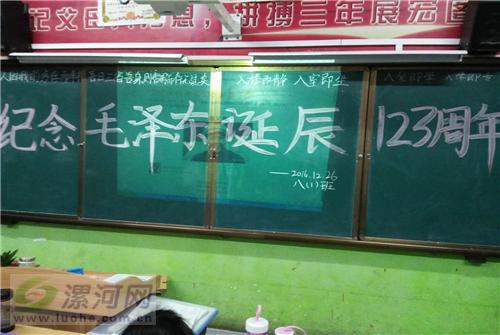 记父母恩,拼搏三年展宏图
入室即静 入室即坐
入室即坐
纪念毛泽东诞辰123周年
——2016.12.26
八(1)班
漯河网
www.luohe.com.cn